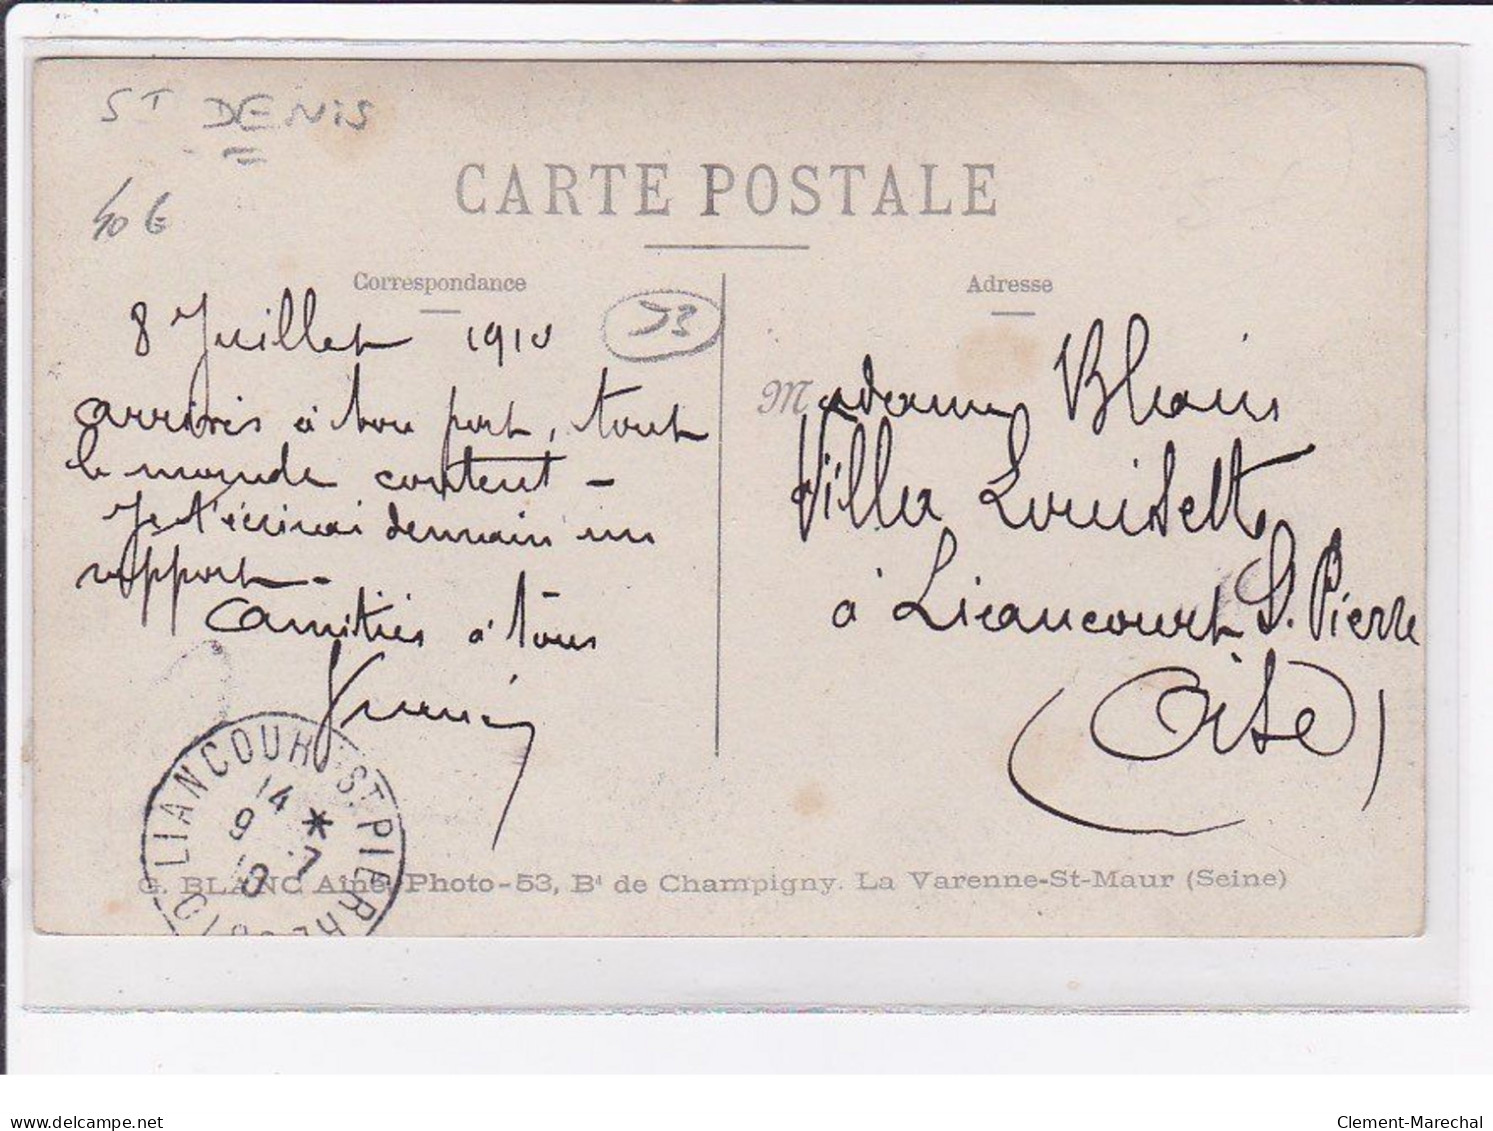 ST DENIS
40 €
CARTE POSTALE
Correspondance
Adresse
8 Juillet 1910
arrivés à bon port, tout
le monde content -
Je t'écrirai demain un
rapport -
amitiés à tous
Madame Blain
Villa Louisette
à Liancourt St. Pierre
(Oise)
LIANCOUR ST. PIERRE (OISE)
14 *
9 7
10
G. BLANC Ainé, Photo-53, Bd de Champigny. La Varenne-St-Maur (Seine)
Clement-Marechal
delcampe.net